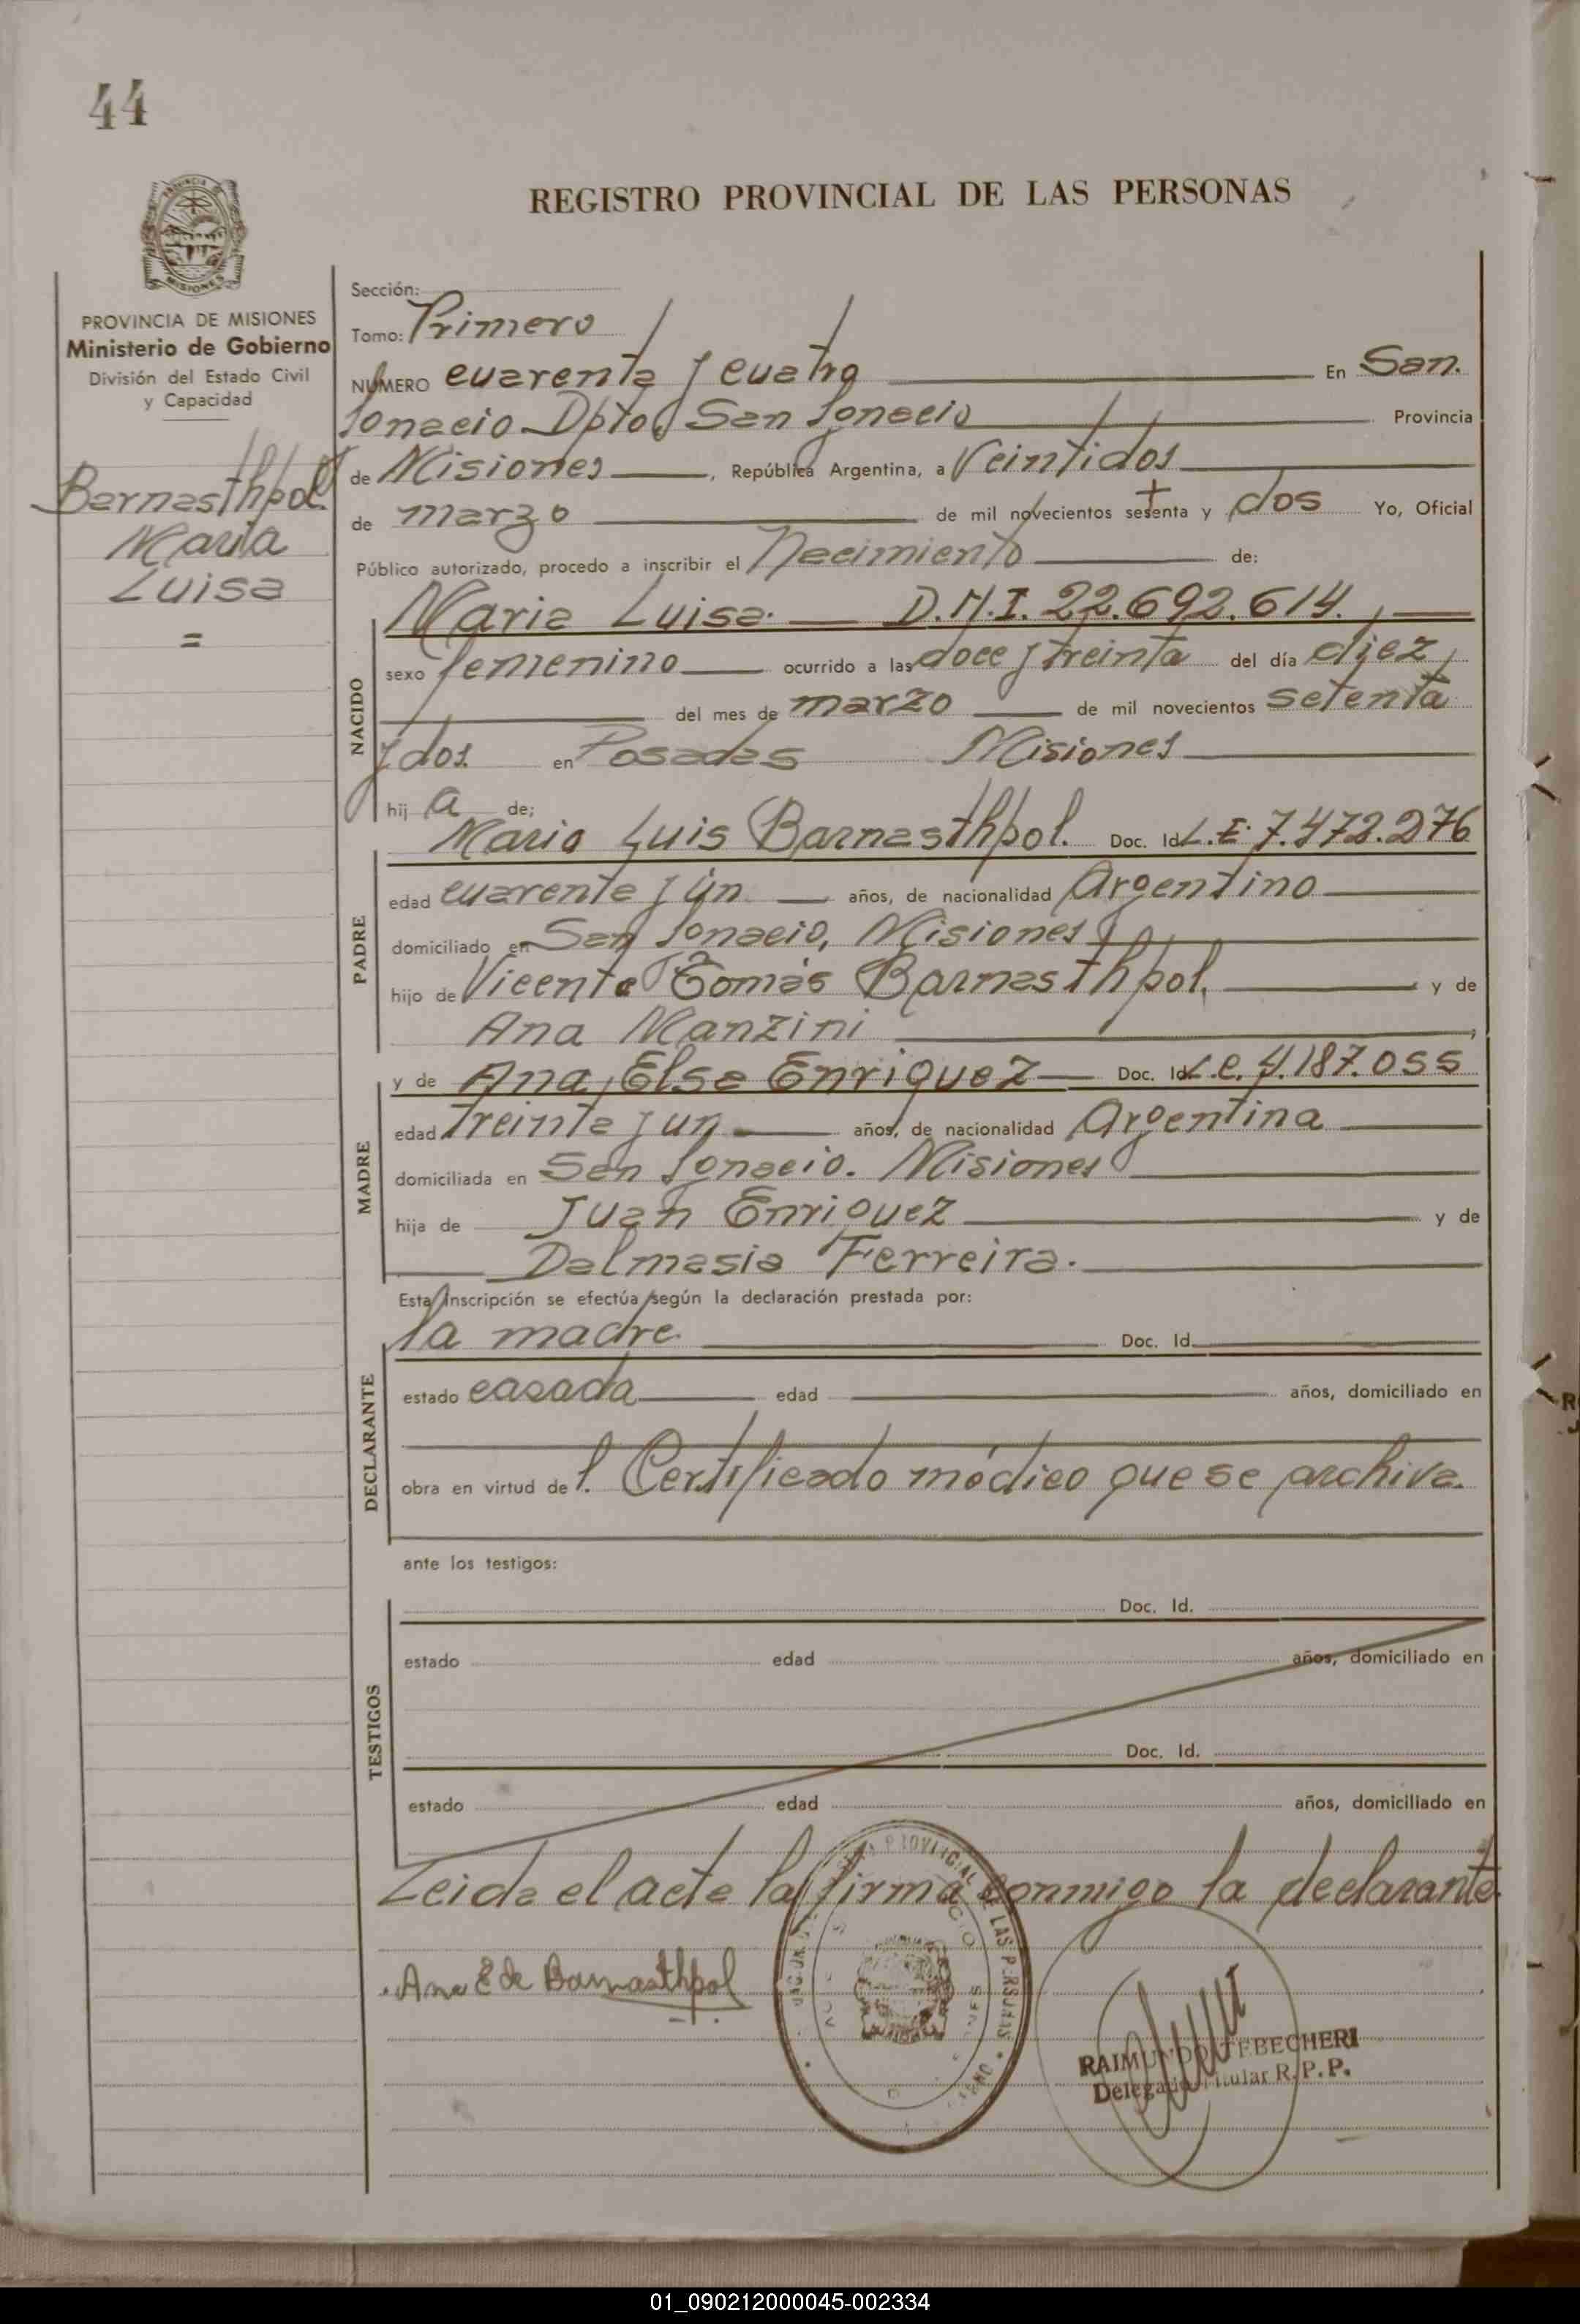 44
REGISTRO PROVINCIAL DE LAS PERSONAS
PROVINCIA DE MISIONES
Ministerio de Gobierno
División del Estado Civil
y Capacidad
Barnasthpol.
Maria
Luisa
=
Sección:
Tomo: Primero
NUMERO cuarenta y cuatro En San.
Ignacio Dpto. San Ignacio Provincia
de Misiones, República Argentina, a Veintidos
de marzo de mil novecientos setenta y dos Yo, Oficial
Público autorizado, procedo a inscribir el Nacimiento de:
NACIDO
Maria Luisa. D.N.I. 22.692.614.
sexo femenino ocurrido a las doce y treinta del día diez,
del mes de marzo de mil novecientos setenta
y dos en Posadas Misiones
hij a de;
PADRE
Mario Luis Barnasthpol. Doc. Id. L.E. 7.472.276
edad cuarenta y un años, de nacionalidad Argentino
domiciliado en San Ignacio, Misiones
hijo de Vicente Tomás Barnasthpol, y de
Ana Manzini
MADRE
y de Ana Elsa Enriquez Doc. Id. L.C. 4.187.055
edad treinta y un años, de nacionalidad Argentina
domiciliada en San Ignacio. Misiones
hija de Juan Enriquez y de
Dalmasia Ferreira.
Esta Inscripción se efectúa según la declaración prestada por:
DECLARANTE
la madre. Doc. Id.
estado casada edad años, domiciliado en
obra en virtud de l. Certificado médico que se archiva.
ante los testigos:
TESTIGOS
Doc. Id.
estado edad años, domiciliado en
Doc. Id.
estado edad años, domiciliado en
Leida el acta la firma conmigo la declarante.
Ana E de Barnasthpol
RAIMUNDO TEBECHERI
Delegado Titular R.P.P.
01_090212000045-002334